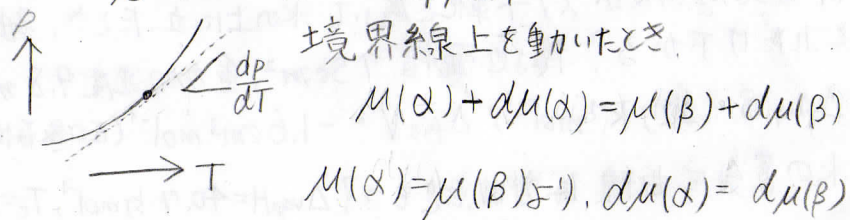 P
dP/dT
T
境界線上を動いたとき、
μ(α)+dμ(α)=μ(β)+dμ(β)
μ(α)=μ(β)より、dμ(α)= dμ(β)